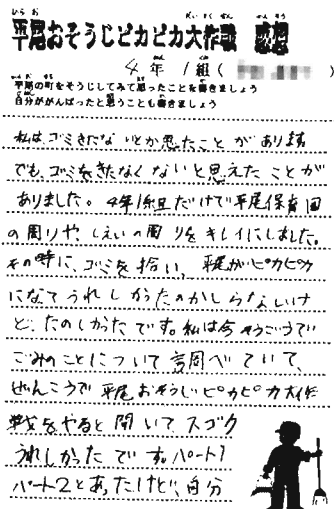 ひらお だいさくせん かんそう
平尾おそうじピカピカ大作戦 感想
4年 1組(
平尾の町をそうじしてみて思ったことを書きましょう
自分ががんばったと思うことも書きましょう
私は、ゴミきたないとか思たことがあります
でも、ゴミをきたなくないと思えたことが
ありました。4年1組だけで平尾保育園
の周りや、しえいの周りをキレイにしました。
その時に、ゴミを拾い、平尾がピカピカ
になてうれしかったのかしらないけ
ど、たのしかったです。私は今そうごうで
ごみのことについて調べていて、
ぜんこうで平尾おそうじピカピカ大作
戦をやると聞いてスゴク
うれしかったです。パート1
パート2とあったけど、自分